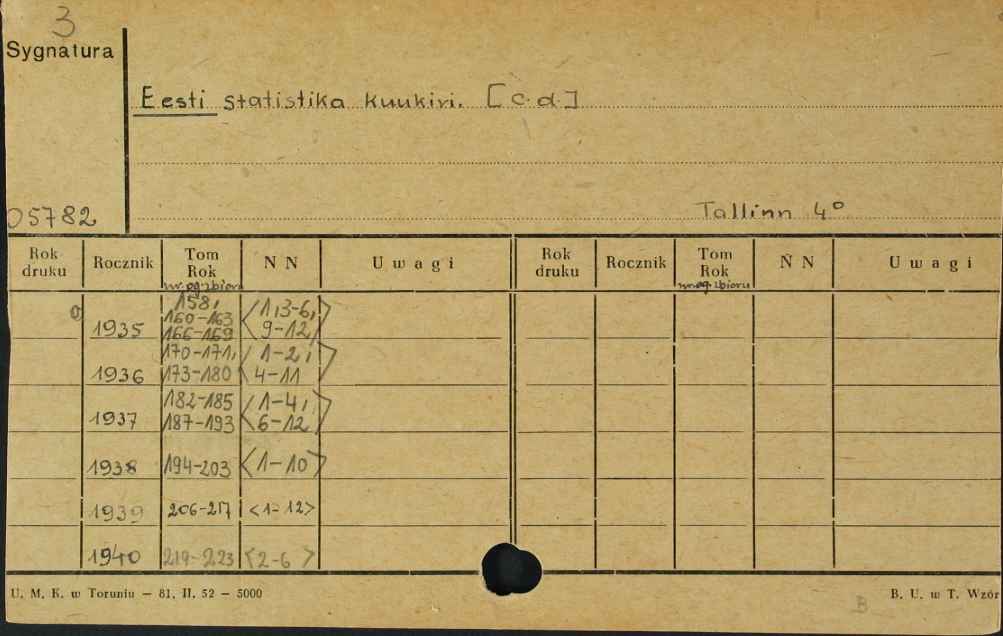 3
Sygnatura
Eesti statistika kuukiri. [c.d.]
05782
Tallinn 4°
Rok druku Rocznik Tom Rok NN Uwagi Rok druku Rocznik Tom Rok NN Uwagi
nr. og. zbioru nr. og. zbioru
1935 158, 160-163 166-169 <1,3-6, 9-12>
1936 170-171, 173-180 <1-2, 4-11>
1937 182-185 187-193 <1-4, 6-12>
1938 194-203 <1-10>
1939 206-217 <1-12>
1940 219-223 <2-6>
U. M. K. w Toruniu — 81. II. 52 — 5000
B. U. w T. Wzór
B